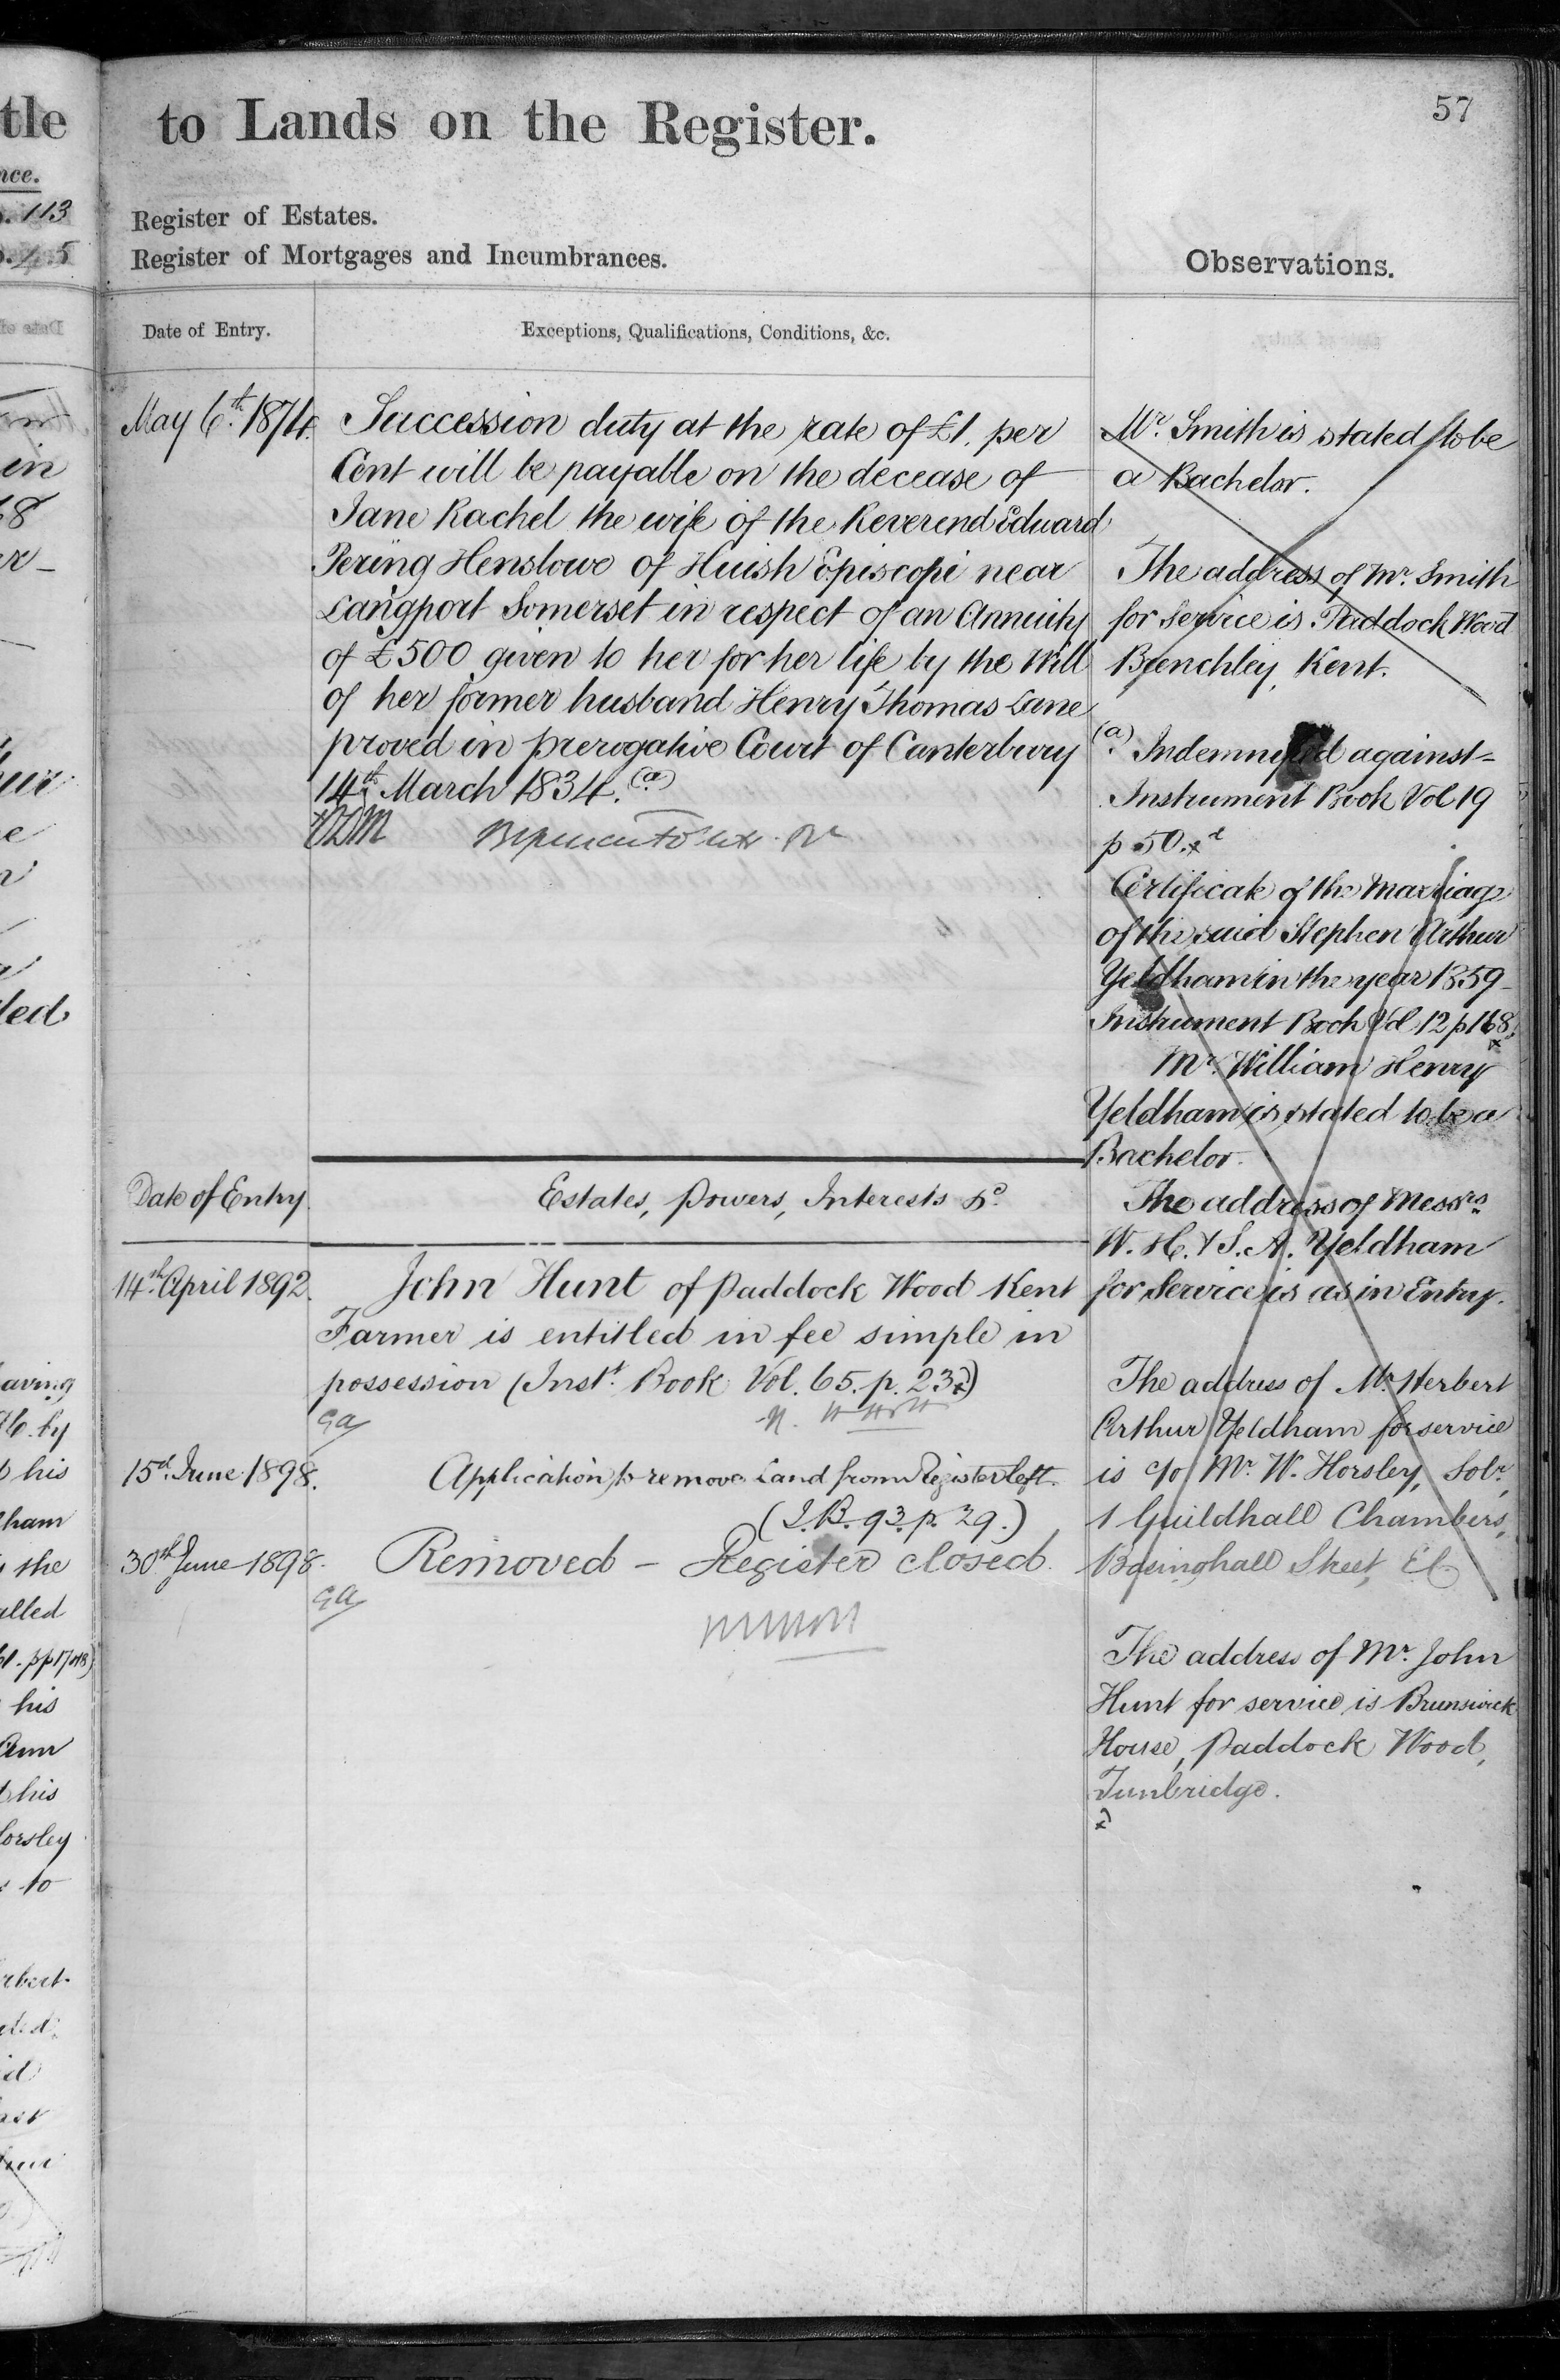 57
to Lands on the Register.
Register of Estates.
Register of Mortgages and Incumbrances.
Observations.
Date of Entry.
Exceptions, Qualifications, Conditions, &c.
May 6th 1874.
Succession duty at the rate of £1. per
Cent will be payable on the decease of
Jane Rachel the wife of the Reverend Edward
Pering Henslowe of Huish Episcopi near
Langport Somerset in respect of an Annuity
of £500 given to her for her life by the Will
of her former husband Henry Thomas Lane
proved in prerogative Court of Canterbury
14th March 1834. (a)
Date of Entry.
Estates, Powers, Interests &c.
14th April 1892.
John Hunt of Paddock Wood Kent
Farmer is entitled in fee simple in
possession (Inst. Book Vol. 65. p. 23)
15th June 1898.
Application to remove Land from Register left.
(I.B. 93. p. 29.)
30th June 1898.
Removed – Register closed.
Mr. Smith is stated to be
a Bachelor.
The address of Mr. Smith
for Service is Paddock Wood
Brenchley, Kent.
(a) Indemnified against –
Instrument Book Vol 19
p 50.
Certificate of the Marriage
of the said Stephen Arthur
Yeldham in the year 1859 –
Instrument Book Vol 12 p 168.
Mr. William Henry
Yeldham is stated to be a
Bachelor.
The address of Messrs.
W. H. & S. A. Yeldham
for Service is as in Entry.
The address of Mr. Herbert
Arthur Yeldham for service
is c/o Mr. W. Horsley, Solr.,
1 Guildhall Chambers,
Basinghall Street, EC.
The address of Mr. John
Hunt for service is Brunswick
House, Paddock Wood,
Tunbridge.